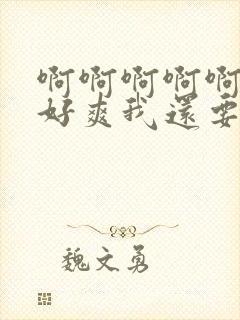 啊啊啊啊啊
好爽我还要
魏文勇